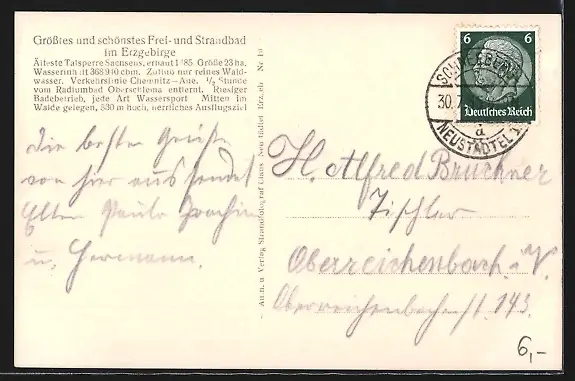 Größtes und schönstes Frei- und Strandbad
im Erzgebirge
Älteste Talsperre Sachsens, erbaut 1485. Größe 23 ha.
Wasserinhalt 368 940 cbm. Zufluß nur reines Wald-
wasser. Verkehrslinie Chemnitz—Aue, ½ Stunde
vom Radiumbad Oberschlema entfernt. Riesiger
Badebetrieb, jede Art Wassersport Mitten im
Walde gelegen, 530 m hoch, herrliches Ausflugsziel
Die besten Grüße
von hier aus sendet
Eltern Paula Joachim
u. Hermann.
Aufn. u. Verlag Neustädtel Erzgeb.
6 6
Deutsches Reich
SCHNEEBERG-
30.
a
NEUSTÄDTEL 1
H. Alfred Bruckner
Tischler
Oberreichenbach i. V.
Oberreichenbacherst. 143.
6,-